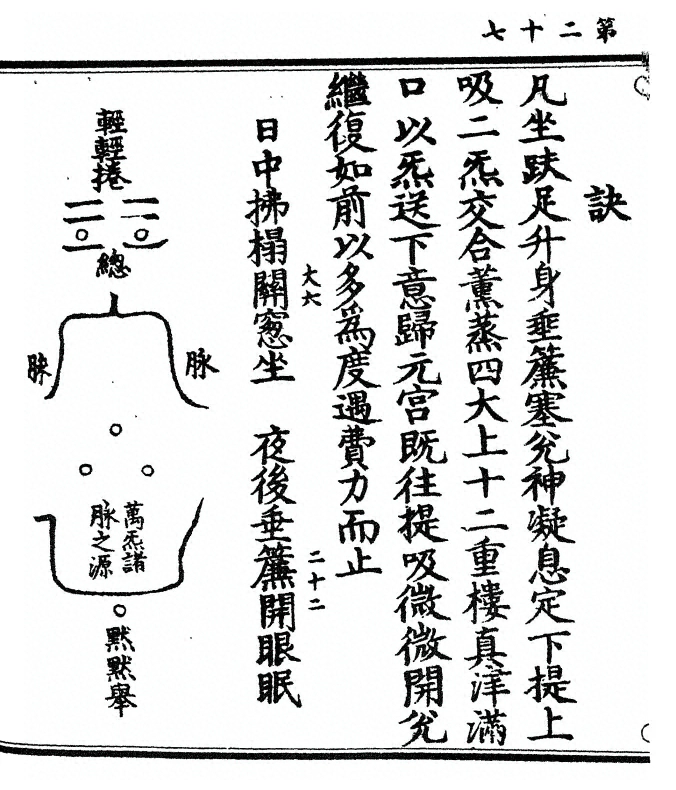 第二十七
訣
凡坐趺足升身垂簾塞兊神凝息定下提上
吸二炁交合薰蒸四大上十二重樓真津滿
口以炁送下意歸元宫既往提吸微微開兊
繼復如前以多為度遇費力而止
日中拂榻關窓坐　夜後垂簾開眼眠
大六
二十二
輕輕捲
總
脉
脉
萬炁諸
脉之源
黙黙舉